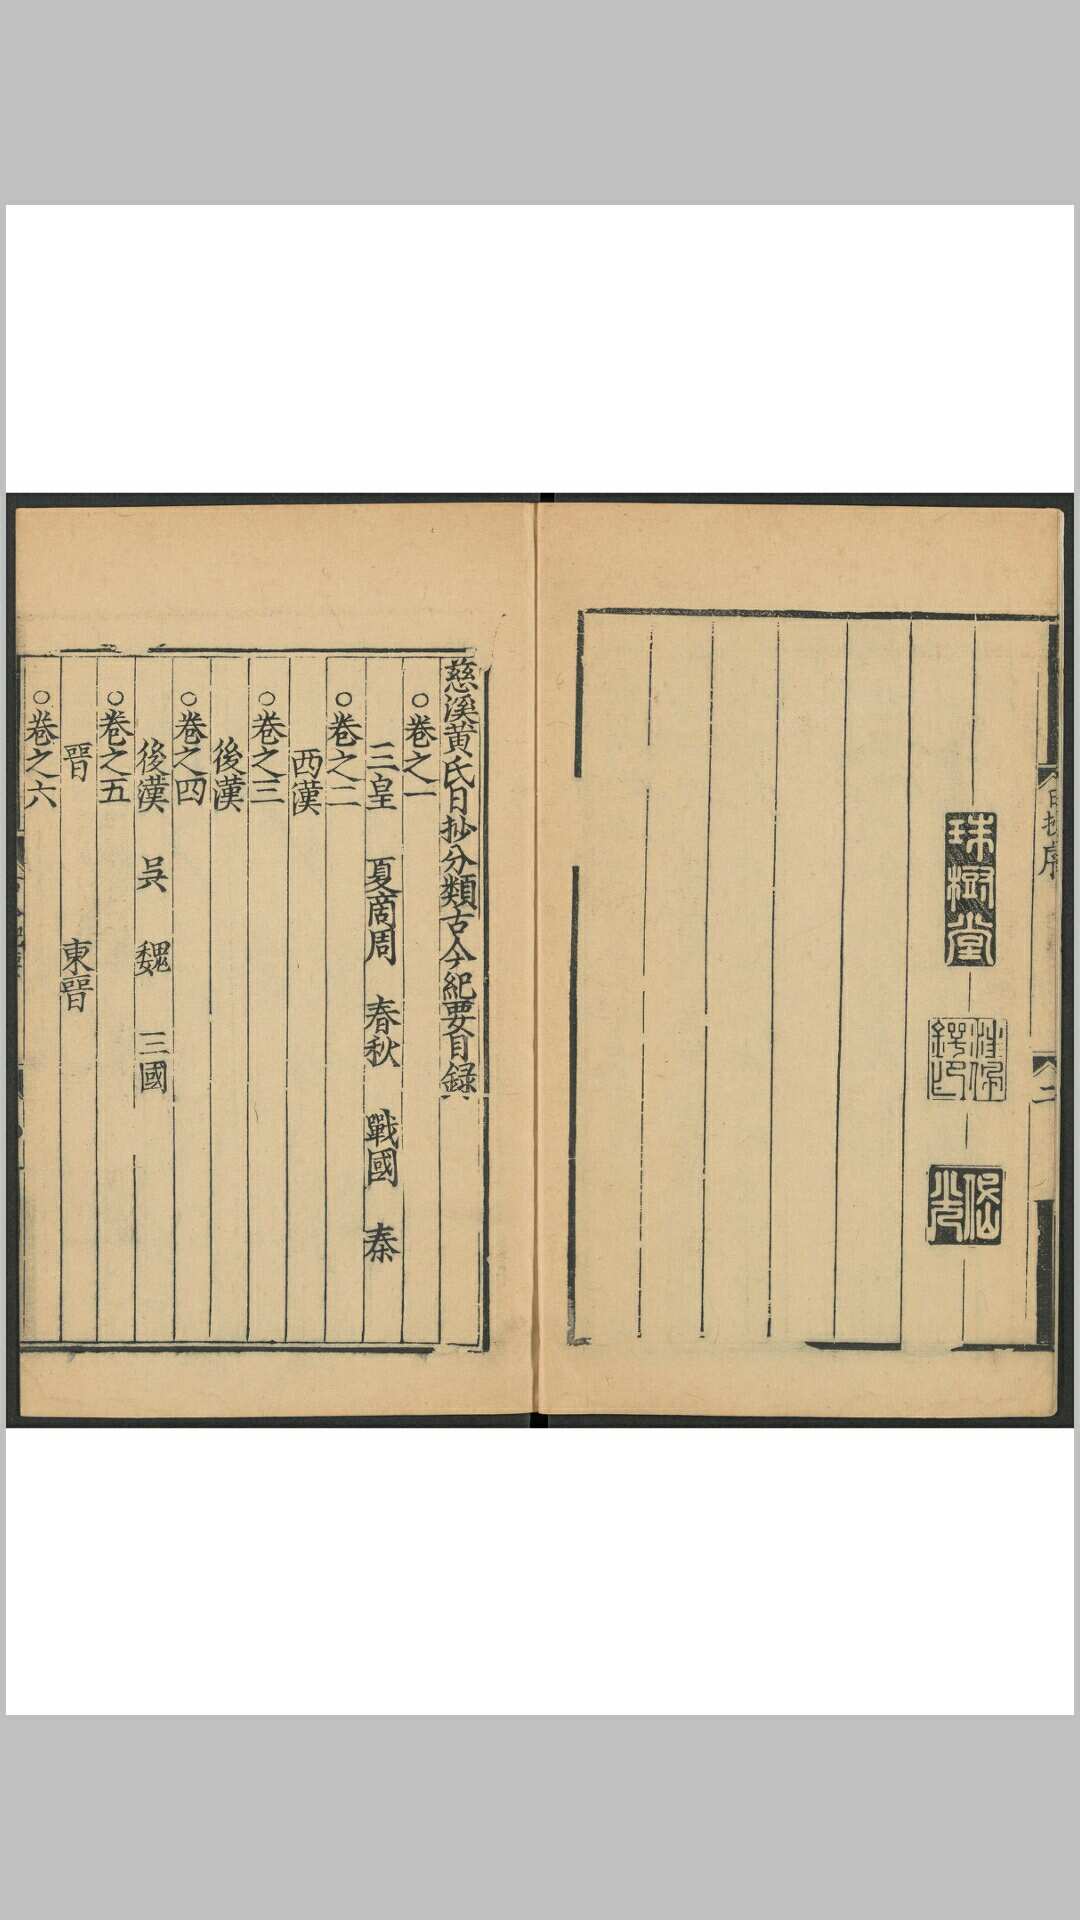 日抄序
二
珠樹堂
慈溪黄氏日抄分類古今紀要目録
○卷之一
三皇　夏商周　春秋　戰國　秦
○卷之二
西漢
○卷之三
後漢
○卷之四
後漢　吳　魏　三國
○卷之五
晉　東晉
○卷之六